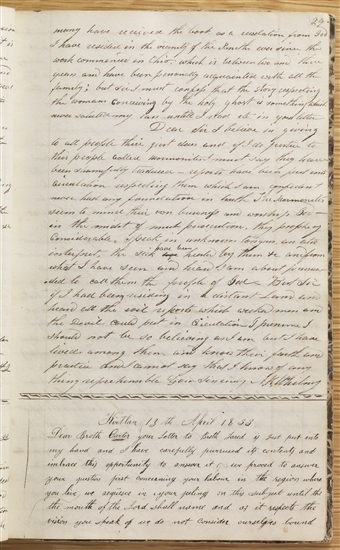 29
many have received the book as a revelation from God
I have resided in the vicinity of the Smiths ever since the
work commenced in Ohio. which is between two and three
years and have been personally acquainted with all the
family; but Sir I must confess that the story respecting
the woman conceiving by the holy ghost is something which
never saluted my ears until I saw it in your letter
Dear Sir I believe in giving
to all people their just dues and if I do justice to
this people called mormonites I must say they have
been shamefully traduced - reports have been put in
circulation respecting them which I am confident
never had any foundation in truth The Mormonites
seem to mind their own business and worship God
in the midst of much persecution, they prophesy
considerable, speak in unknown tongues, and also
interpret, the sick have been healed by them &c and from
what I have seen and heard I am about persua
ded to call them the people of God - Dear Sir
if I had been residing in a distant land and
heard all the evil reports which wicked men and
the Devil could put in circulation I presume I
should not be so believing as I am but I have
lived among them and know their faith and
practice and cannot say that I know of any
thing reprehensible Yours sincerely
Kirtland 13th April 1833
Dear Broth Carter your letter to Broth Jared is just put into
my hand and I have carefully purrused its contents and
imbrace this opportunity to answer it, we proced to answer
your questions first concerning your labour in the region where
you live, we acquiesce in your feelings on this subject until the
the mouth of the Lord shall name and as it respects the
vision you speak of we do not consider ourselves bound